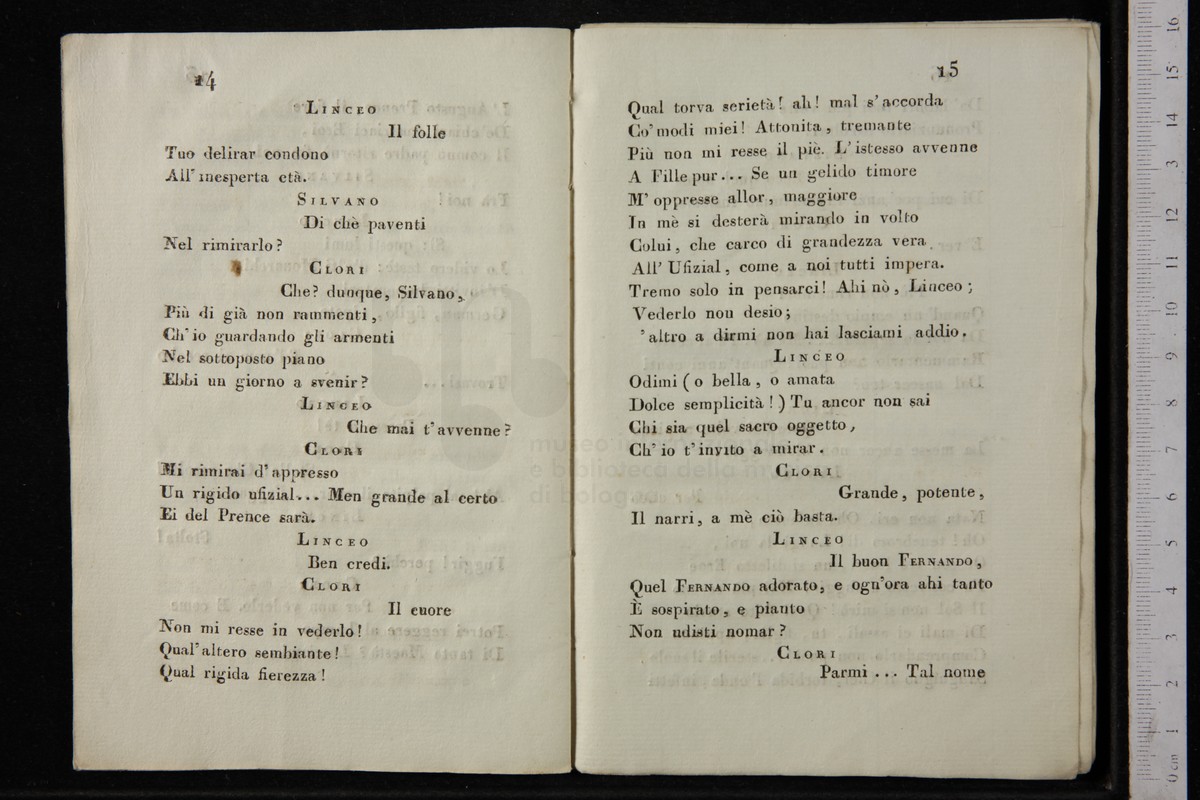 14
LINCEO
Il folle
Tuo delirar condono
All' inesperta età.
SILVANO
Di chè paventi
Nel rimirarlo?
CLORI
Che? dunque, Silvano,
Più di già non rammenti,
Ch' io guardando gli armenti
Nel sottoposto piano
Ebbi un giorno a svenir?
LINCEO
Che mai t'avvenne?
CLORI
Mi rimirai d'appresso
Un rigido ufizial... Men grande al certo
Ei del Prence sarà.
LINCEO
Ben credi.
CLORI
Il cuore
Non mi resse in vederlo!
Qual'altero sembiante!
Qual rigida fierezza!
15
Qual torva serietà! ah! mal s'accorda
Co' modi miei! Attonita, tremante
Più non mi resse il piè. L'istesso avvenne
A Fille pur... Se un gelido timore
M' oppresse allor, maggiore
In mè si desterà mirando in volto
Colui, che carco di grandezza vera
All' Ufizial, come a noi tutti impera.
Tremo solo in pensarci! Ahi nò, Linceo;
Vederlo non desio;
'altro a dirmi non hai lasciami addio.
LINCEO
Odimi (o bella, o amata
Dolce semplicità!) Tu ancor non sai
Chi sia quel sacro oggetto,
Ch' io t'invito a mirar.
CLORI
Grande, potente,
Il narri, a mè ciò basta.
LINCEO
Il buon FERNANDO,
Quel FERNANDO adorato, e ogn'ora ahi tanto
È sospirato, e pianto
Non udisti nomar?
CLORI
Parmi... Tal nome
museo internazionale
e biblioteca della musica
di bologna
16
15
14
3
12
1
10
9
8
7
6
5
4
3
2
1
0 cm